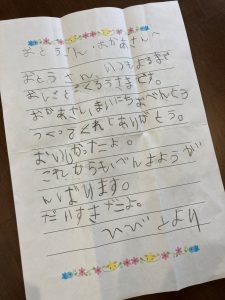 おとうさん・おかあさんへ
おとうさん、いつもよるまで
おしごとごくろうさまです。
おかあさん、まいにちおべんとう
つくってくれてありがとう。
おいしかったよ。
これからもべんきょうが
んばります。
だいすきだよ。
より